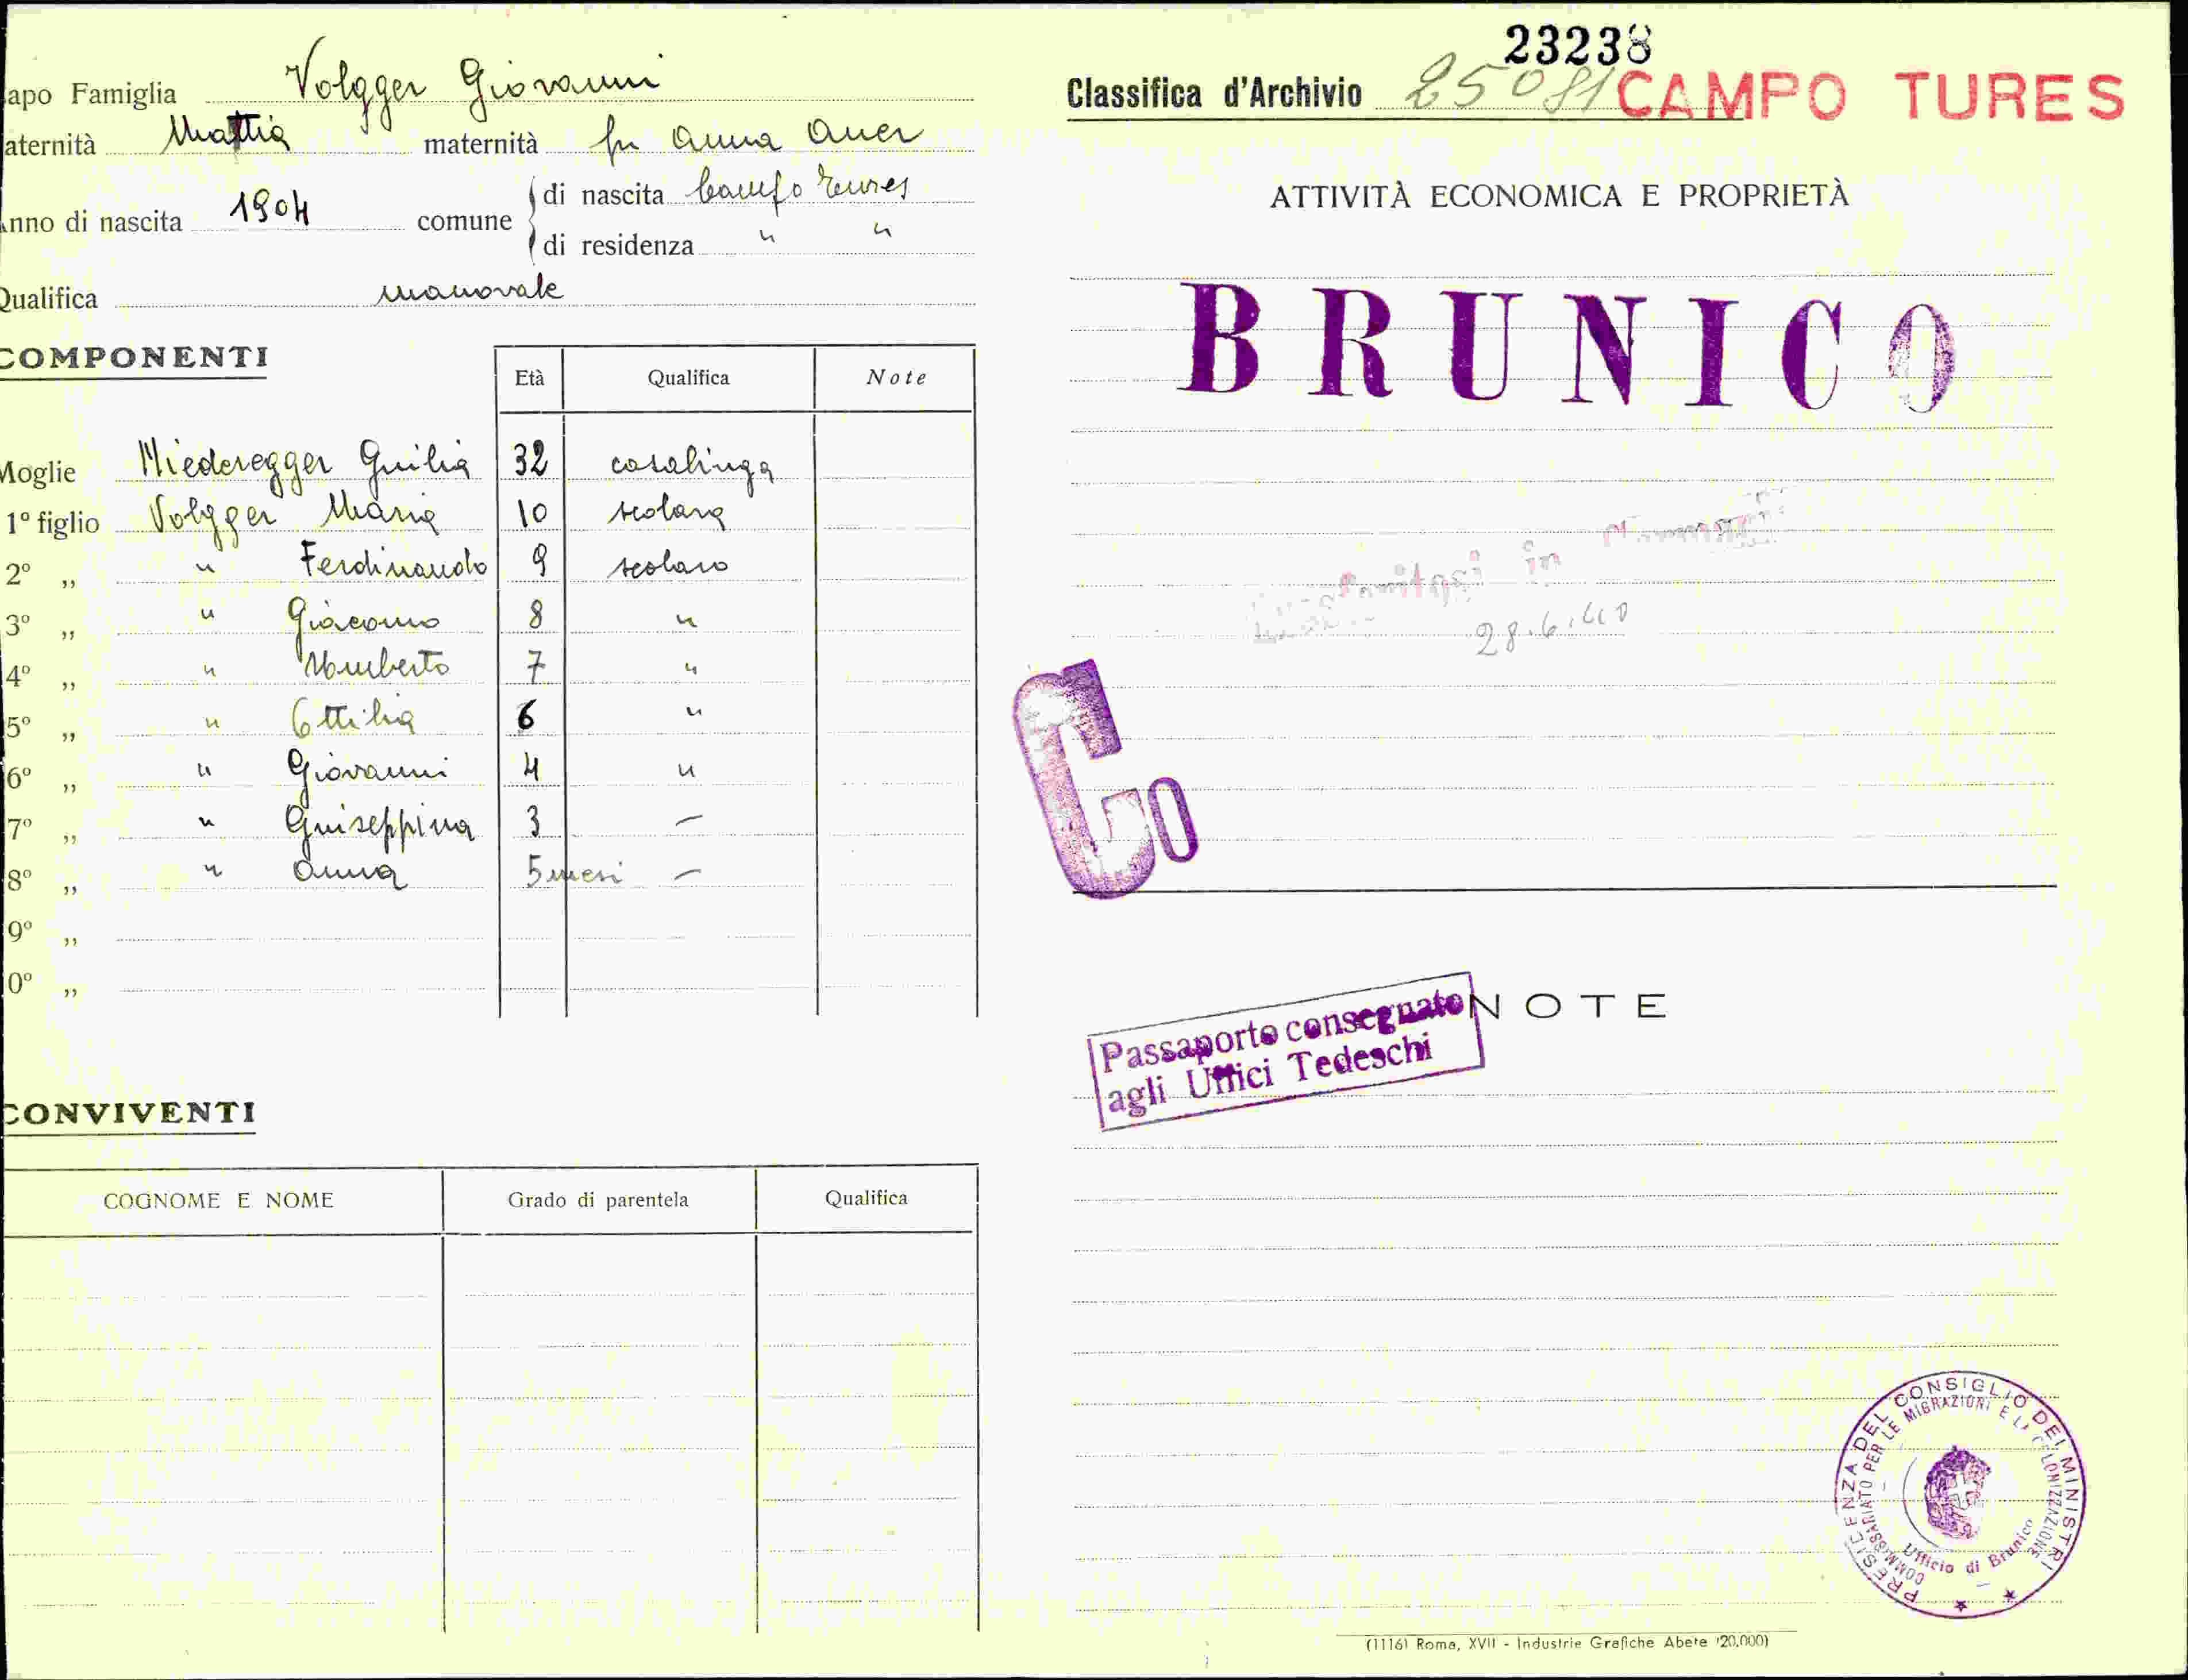 apo Famiglia Volgger Giovanni
aternità Mattia maternità fu Anna Auer
nno di nascita 1904 comune di nascita Campo Tures
di residenza " "
Qualifica manovale
COMPONENTI
Età Qualifica Note
Moglie Niederegger Guilia 32 casalinga
1º figlio Volgger Maria 10 scolara
2º „ " Ferdinando 9 scolaro
3º „ " Giacomo 8 "
4º „ " Umberto 7 "
5º „ " Ottilia 6 "
6º „ " Giovanni 4 "
7º „ " Guiseppina 3 —
8º „ " Anna 5 mesi —
9º „
0º „
CONVIVENTI
COGNOME E NOME Grado di parentela Qualifica
23238
Classifica d'Archivio 25081 CAMPO TURES
ATTIVITÀ ECONOMICA E PROPRIETÀ
BRUNICO
in
28.6.40
Co
NOTE
Passaporto consegnato
agli Uffici Tedeschi
PRESIDENZA DEL CONSIGLIO DEI MINISTRI
COMMISSARIATO PER LE MIGRAZIONI E LA COLONIZZAZIONE
Ufficio di Brunico
(1116) Roma, XVII - Industrie Grafiche Abete (20.000)